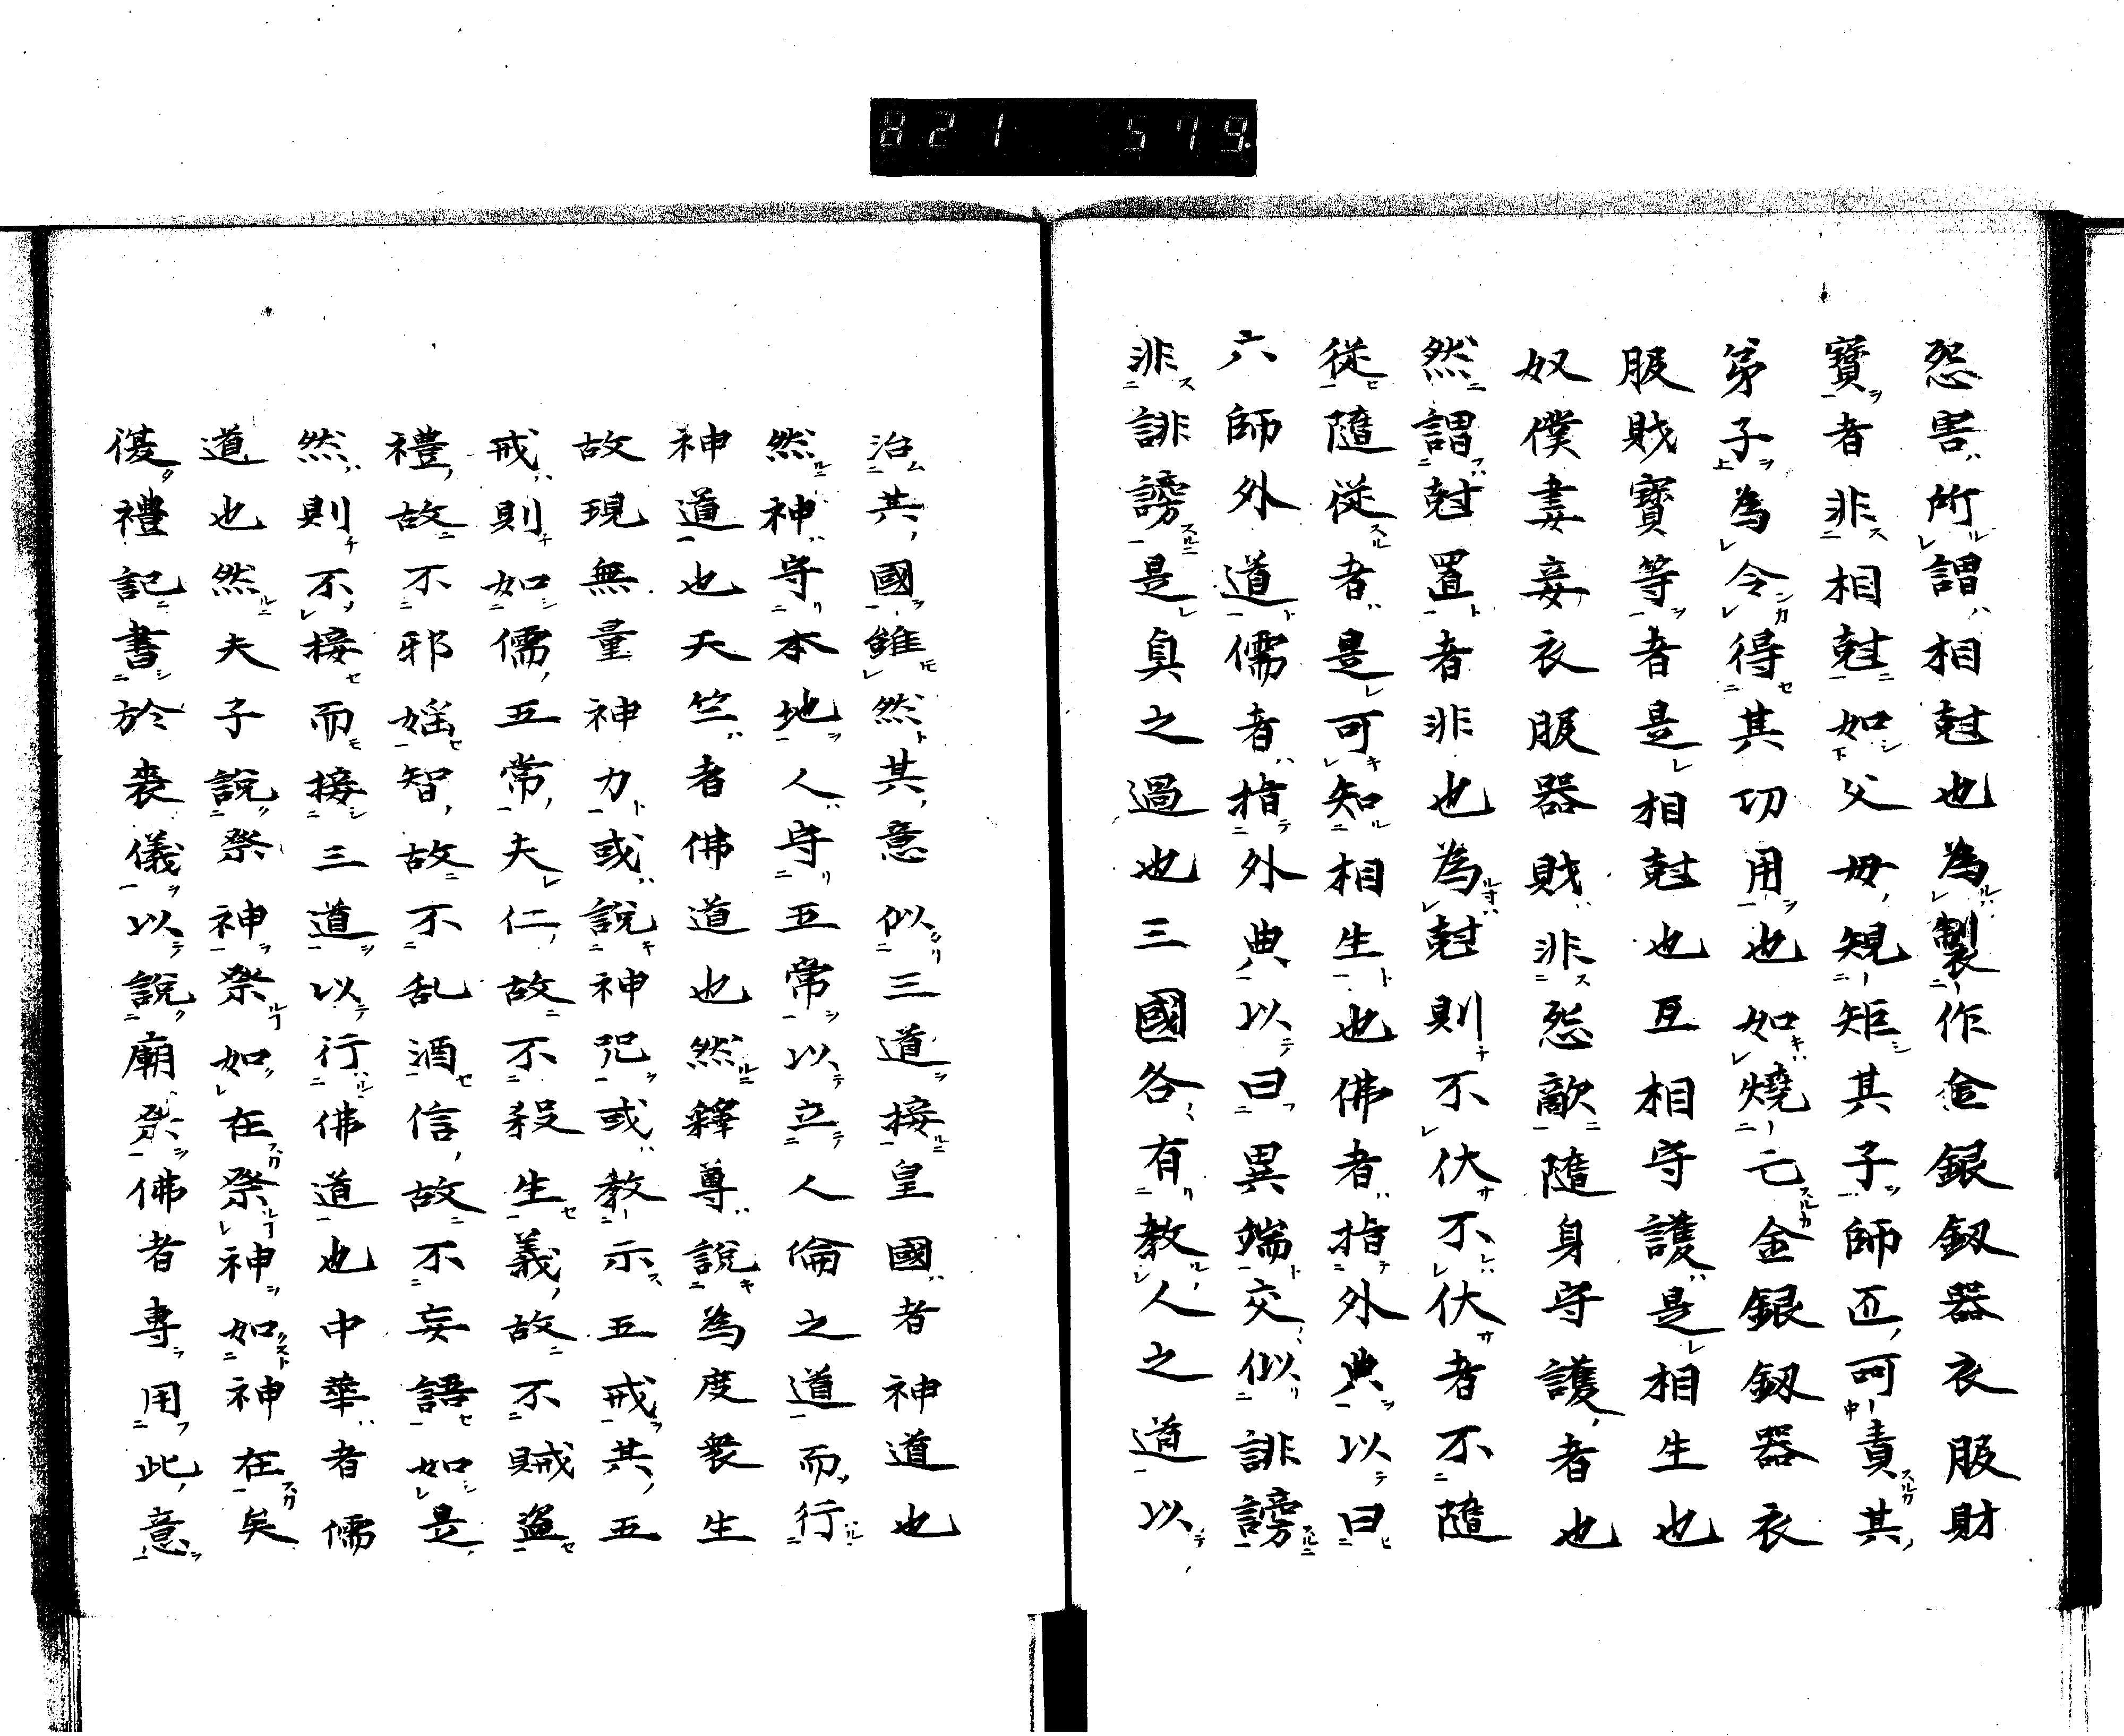 821 579.
怨害所謂相尅也為製作金銀釼器衣服財
寶者非相尅如父母規矩其子師匠呵責其
弟子為令得其切用也如燒亡金銀釼器衣
服賎寶等者是相尅也互相守護是相生也
奴僕妻妾衣服器賎非怨敵隨身守護者也
然謂尅置者非也為尅則不伏不伏者不隨
從隨從者是可知相生也佛者指外典以曰
六師外道儒者指外典以曰異端交似誹謗
非誹謗是臭之過也三國各有教人之道以
治其國雖然其意似三道接皇國者神道也
然神守本地人守五常以立人倫之道而行
神道也天竺者佛道也然釋尊說為度衆生
故現無量神力或說神咒或教示五戒其五
戒則如儒五常夫仁故不殺生義故不賊盗
禮故不邪婬智故不乱酒信故不妄語如是
然則不接而接三道以行佛道也中華者儒
道也然夫子說祭神祭如在祭神如神在矣
復禮記書於喪儀以說廟祭佛者專用此意